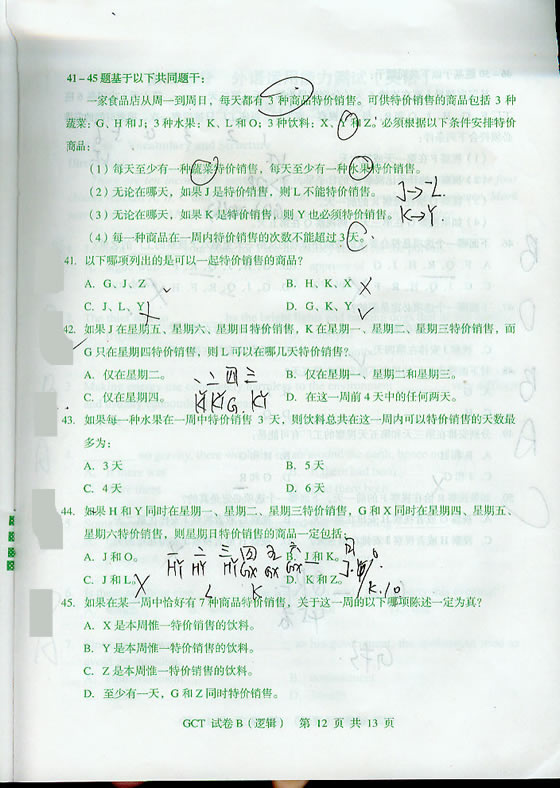 41-45题基于以下共同题干：
一家食品店从周一到周日，每天都有 3 种商品特价销售。可供特价销售的商品包括 3 种
蔬菜：G、H和J；3 种水果：K、L和O；3 种饮料：X、Y和Z。必须根据以下条件安排特价
商品：
（1）每天至少有一种蔬菜特价销售，每天至少有一种水果特价销售。
（2）无论在哪天，如果J是特价销售，则L不能特价销售。 J→-L
（3）无论在哪天，如果K是特价销售，则Y也必须特价销售。 K→Y.
（4）每一种商品在一周内特价销售的次数不能超过 3 天。
41. 以下哪项列出的是可以一起特价销售的商品？
A. G、J、Z B. H、K、X X
C. J、L、Y X D. G、K、Y ✓
42. 如果J在星期五、星期六、星期日特价销售，K在星期一、星期二、星期三特价销售，而
G只在星期四特价销售，则L可以在哪几天特价销售？
A. 仅在星期二。 B. 仅在星期一、星期二和星期三。
一 二 四 三
C. 仅在星期四。 D. 在这一周前 4 天中的任何两天。
KY KY G. KY
43. 如果每一种水果在一周中特价销售 3 天，则饮料总共在这一周内可以特价销售的天数最
多为：
A. 3 天 B. 5 天
C. 4 天 D. 6 天
44. 如果H和Y同时在星期一、星期二、星期三特价销售，G和X同时在星期四、星期五、
星期六特价销售，则星期日特价销售的商品一定包括：
A. J和O。 B. J和K。
一 二 三 四 五 六 日
HY HY HY GX GX GX
C. J和L。 X D. K和Z。
L K
45. 如果在某一周中恰好有 7 种商品特价销售，关于这一周的以下哪项陈述一定为真？
A. X是本周惟一特价销售的饮料。
B. Y是本周惟一特价销售的饮料。
C. Z是本周惟一特价销售的饮料。
D. 至少有一天，G和Z同时特价销售。
GCT 试卷B（逻辑） 第 12 页 共 13 页